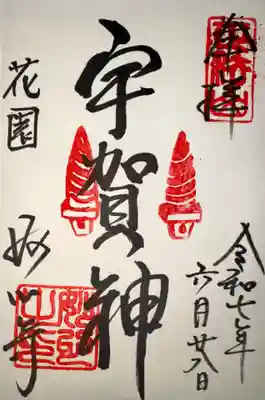 奉拝
宇賀神
花園
妙心寺
令和七年
六月廿八日